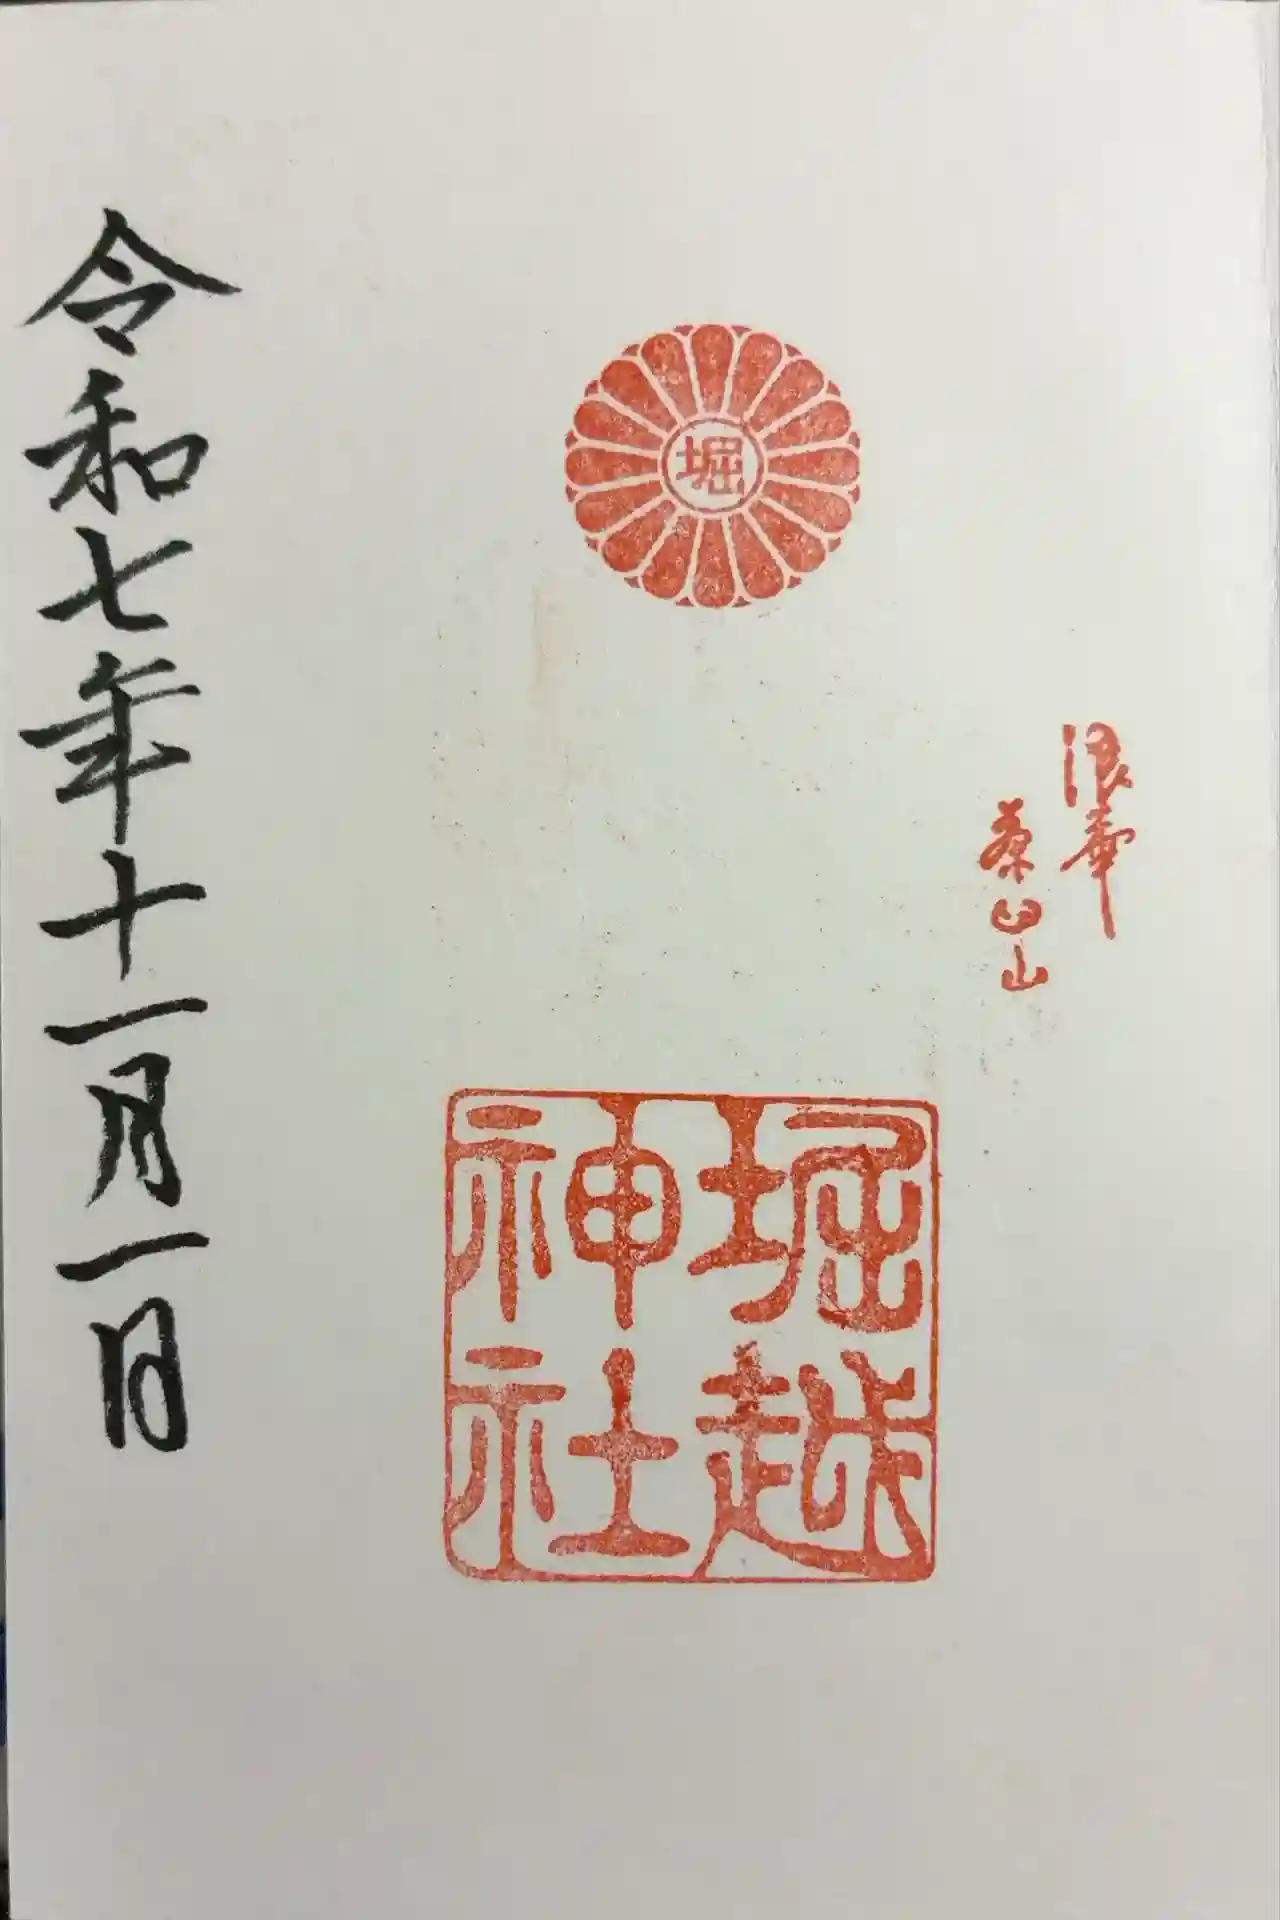 浪華
茶臼山
堀
堀越
神社
令和七年十一月一日